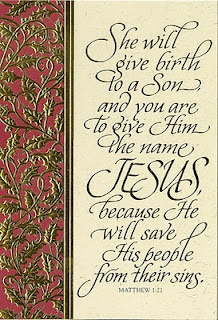 She will
give birth
to a Son,
and you are
to give Him
the name
JESUS,
because He
will save
His people
from their sins.
MATTHEW 1:21